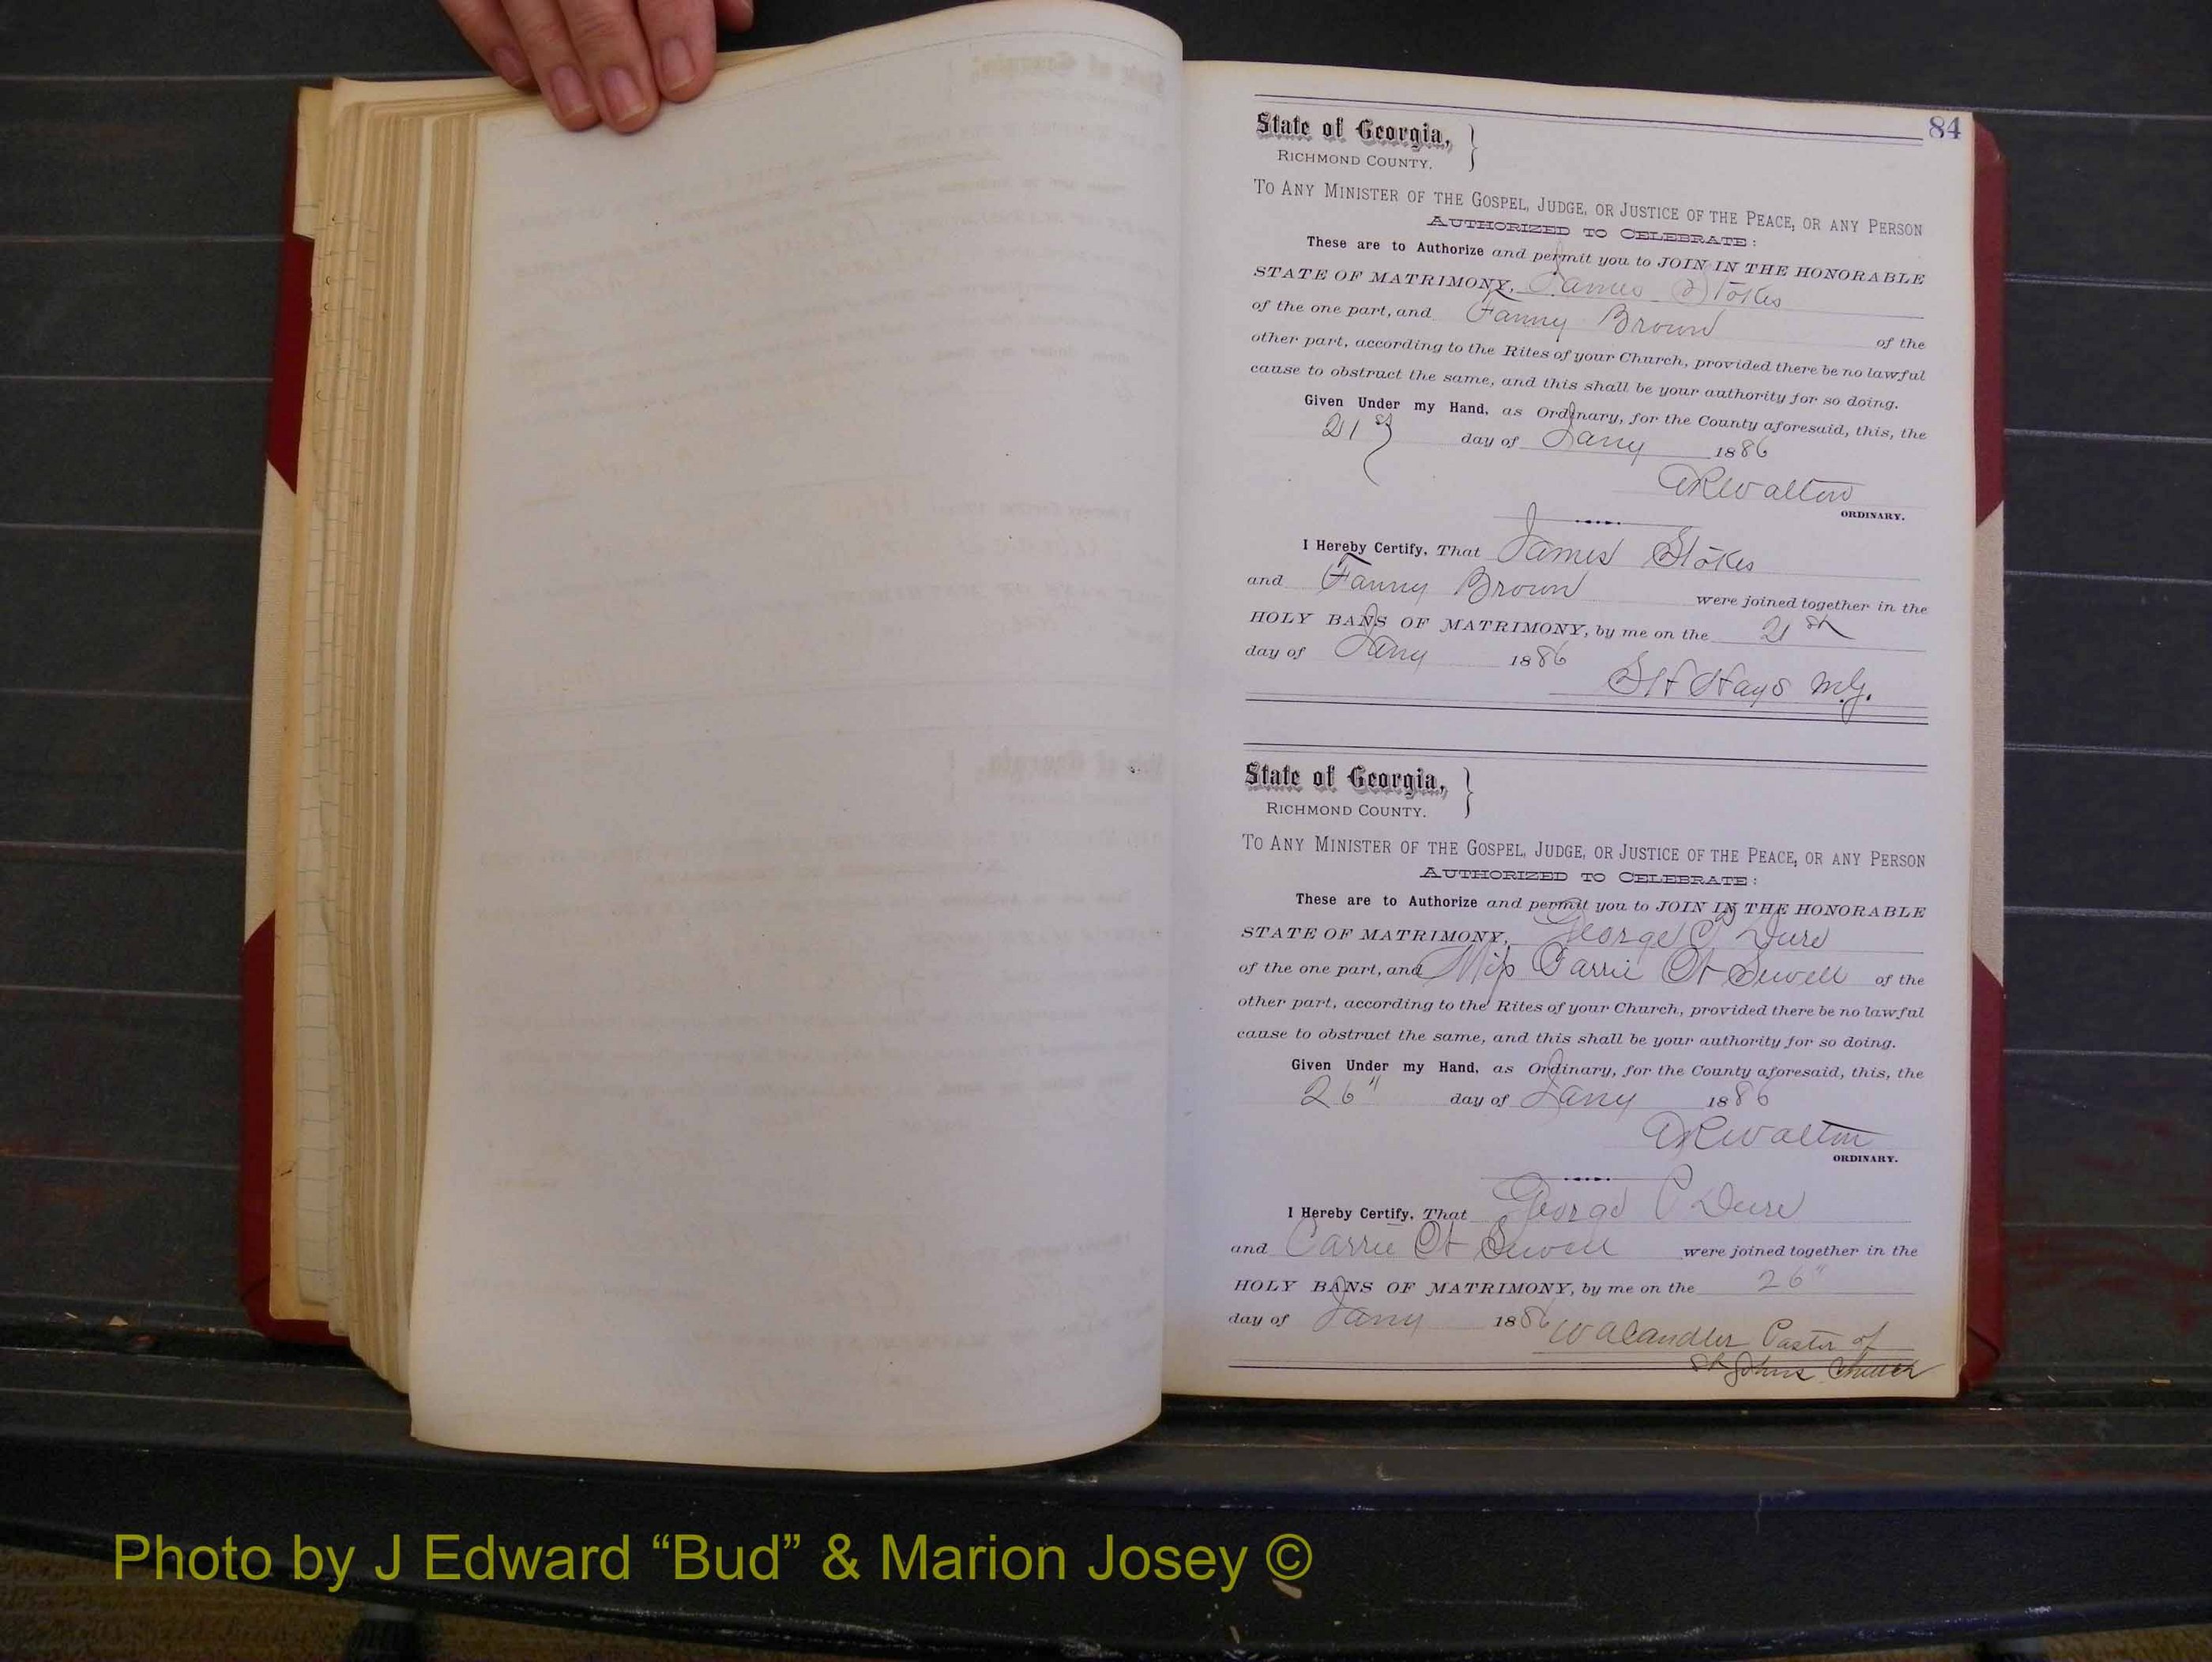 84
State of Georgia,
RICHMOND COUNTY.
TO ANY MINISTER OF THE GOSPEL, JUDGE, OR JUSTICE OF THE PEACE, OR ANY PERSON
AUTHORIZED TO CELEBRATE:
These are to Authorize and permit you to JOIN IN THE HONORABLE
STATE OF MATRIMONY, James Stokes
of the one part, and Fanny Brown of the
other part, according to the Rites of your Church, provided there be no lawful
cause to obstruct the same, and this shall be your authority for so doing.
Given Under my Hand, as Ordinary, for the County aforesaid, this, the
21st day of Jany 1886
ARWalton
ORDINARY.
I Hereby Certify, That James Stokes
and Fanny Brown were joined together in the
HOLY BANS OF MATRIMONY, by me on the 21st
day of Jany 1886
SH Hays M.G.
State of Georgia,
RICHMOND COUNTY.
TO ANY MINISTER OF THE GOSPEL, JUDGE, OR JUSTICE OF THE PEACE, OR ANY PERSON
AUTHORIZED TO CELEBRATE:
These are to Authorize and permit you to JOIN IN THE HONORABLE
STATE OF MATRIMONY, George P Dure
of the one part, and Miss Carrie H Sewell of the
other part, according to the Rites of your Church, provided there be no lawful
cause to obstruct the same, and this shall be your authority for so doing.
Given Under my Hand, as Ordinary, for the County aforesaid, this, the
26" day of Jany 1886
ARWalton
ORDINARY.
I Hereby Certify, That George P Dure
and Carrie H Sewell were joined together in the
HOLY BANS OF MATRIMONY, by me on the 26"
day of Jany 1886
W A Candler Pastor of
St Johns Church
Photo by J Edward “Bud” & Marion Josey ©